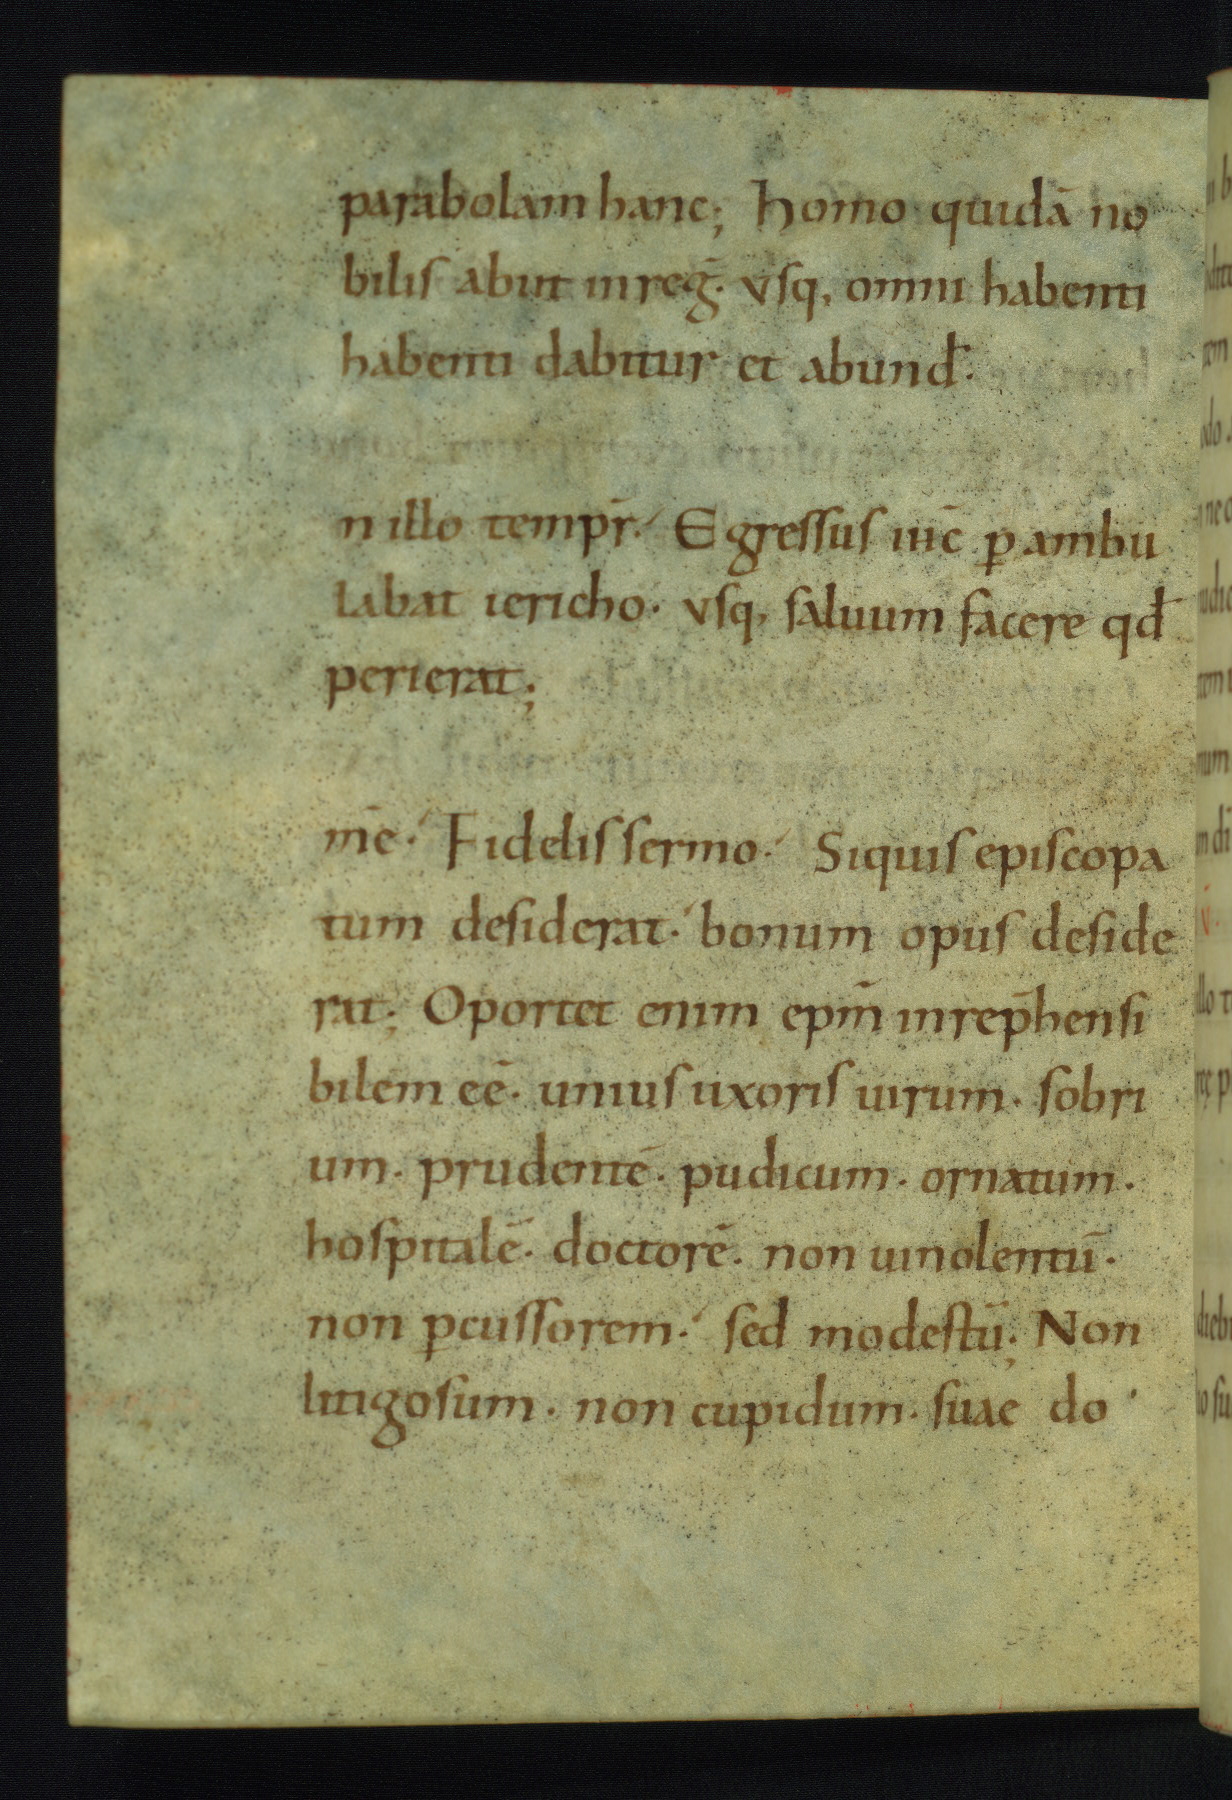 parabolam hanc; Homo quidā no
bilis abiit in reḡ. vsq, omni habenti
habenti dabitur et abund̄.
n illo temp̄r. Egressus iħc p̄ambu
labat iericho. vsq, saluum facere qd̄
perierat;
m̄e. Fidelis sermo. Siquis episcopa
tum desiderat. bonum opus deside
rat; Oportet enim ep̄m inrep̄hensi
bilem eē. unius uxoris uirum. sobri
um. prudentē. pudicum. ornatum.
hospitalē. doctorē. non uinolentū.
non ꝑcussorem. sed modestū; Non
litigosum. non cupidum. suae do